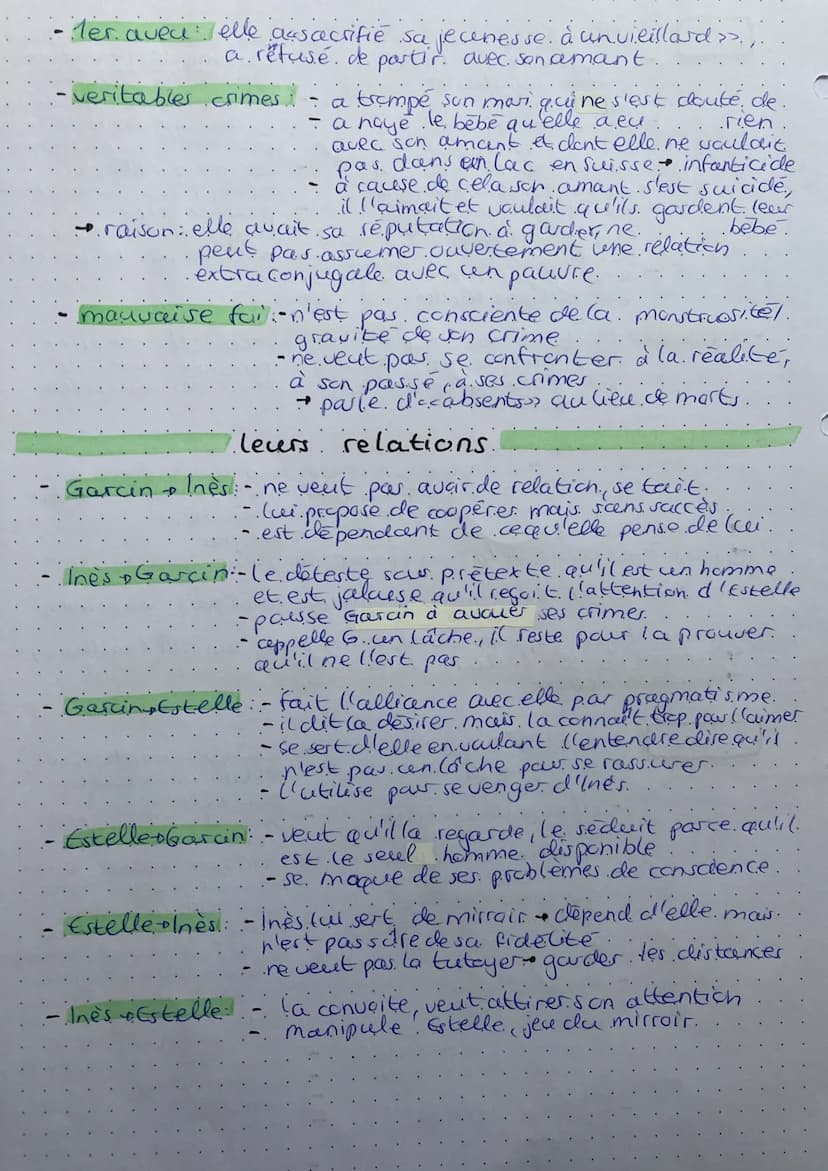 - 1er aveu: elle a «sacrifié sa jeunesse à un vieillard»,
a refusé de partir avec son amant
- veritables crimes: - a trompé son mari qui ne s'est douté de rien
- a noyé le bébé qu'elle a eu
avec son amant et dont elle ne voulait
pas dans un lac en Suisse → infanticide
- à cause de cela son amant s'est suicidé,
il l'aimait et voulait qu'ils gardent leur bébé
→ raison: elle avait sa réputation à garder, ne
peut pas assumer ouvertement une relation
extraconjugale avec un pauvre
- mauvaise foi: - n'est pas consciente de la monstruosité/
gravité de son crime
- ne veut pas se confronter à la réalité,
à son passé, à ses crimes
→ parle d'«absents» au lieu de morts
leurs relations
- Garcin → Inès: - ne veut pas avoir de relation, se tait
- lui propose de coopérer mais sans succès
- est dépendant de ce qu'elle pense de lui
- Inès → Garcin: - le déteste sous prétexte qu'il est un homme
et est jalouse qu'il reçoit l'attention d'Estelle
- pousse Garcin à avouer ses crimes
- appelle G. un lâche, il reste pour la prouver
qu'il ne l'est pas
- Garcin → Estelle: - fait l'alliance avec elle par pragmatisme
- il dit la désirer mais la connaît trop pour l'aimer
- se sert d'elle en voulant l'entendre dire qu'il
n'est pas un lâche pour se rassurer
- l'utilise pour se venger d'Inès
- Estelle → Garcin: - veut qu'il la regarde, le séduit parce qu'il
est le seul homme disponible
- se moque de ses problèmes de conscience
- Estelle → Inès: - Inès lui sert de mirroir → dépend d'elle mais
n'est pas sûre de sa fidélité
- ne veut pas la tutoyer → garder les distances
- Inès → Estelle: - la convoite, veut attirer son attention
- manipule Estelle, jeu du mirroir